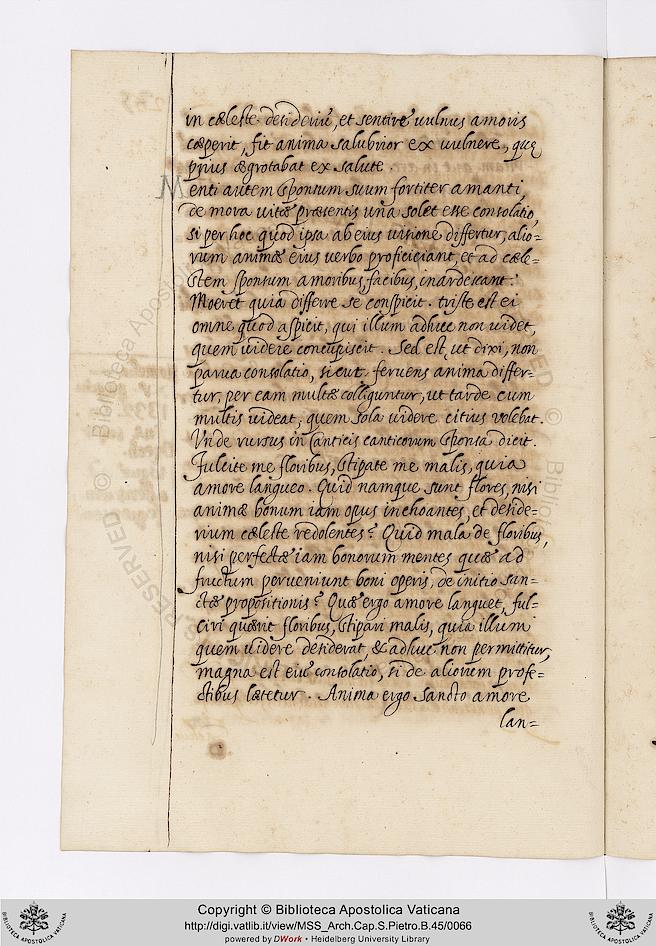 in cæleste desideriũ, et sentire uulnus amoris
cæperit, fit anima salubrior ex uulnere, quę
prius ægrotabat ex salute.
Menti autem sponsum suum fortiter amanti,
de mora uitæ præsentis una solet esse consolatio,
si per hoc quod ipsa ab eius uisione differtur, alio=
rum animæ eius uerbo proficiciant, et ad cæle=
stem sponsum amoribus, facibus, inardescant:
Moeret quia differre se conspicit. triste est ei
omne quod aspicit, qui illum adhuc non uidet,
quem uidere concupiscit. Sed est, ut dixi, non
parua consolatio, si cut feruens anima differ=
tur, per eam multæ colliguntur, ut tarde cum
multis uideat, quem sola uidere citius volebat.
Vnde rursus in Canticis canticorum sponsa dicit.
Fulcite me floribus, stipate me malis, quia
amore langueo. Quid namque sunt flores, nisi
animæ bonum iam opus inchoantes, et deside=
rium cæleste redolentes? Quid mala de floribus,
nisi perfectæ iam bonorum mentes quæ ad
fructum perueniunt boni operis, de initio san=
ctæ propositionis? Quæ ergo amore languet, ful=
ciri quærit floribus, stipari malis, quia illum
quem uidere desiderat, & adhuc non permittitur,
magna est eius consolatio, si de aliorum profe=
ctibus lætetur. Anima ergo sancto amore
lan=
Copyright © Biblioteca Apostolica Vaticana
http://digi.vatlib.it/view/MSS_Arch.Cap.S.Pietro.B.45/0066
powered by DWork • Heidelberg University Library